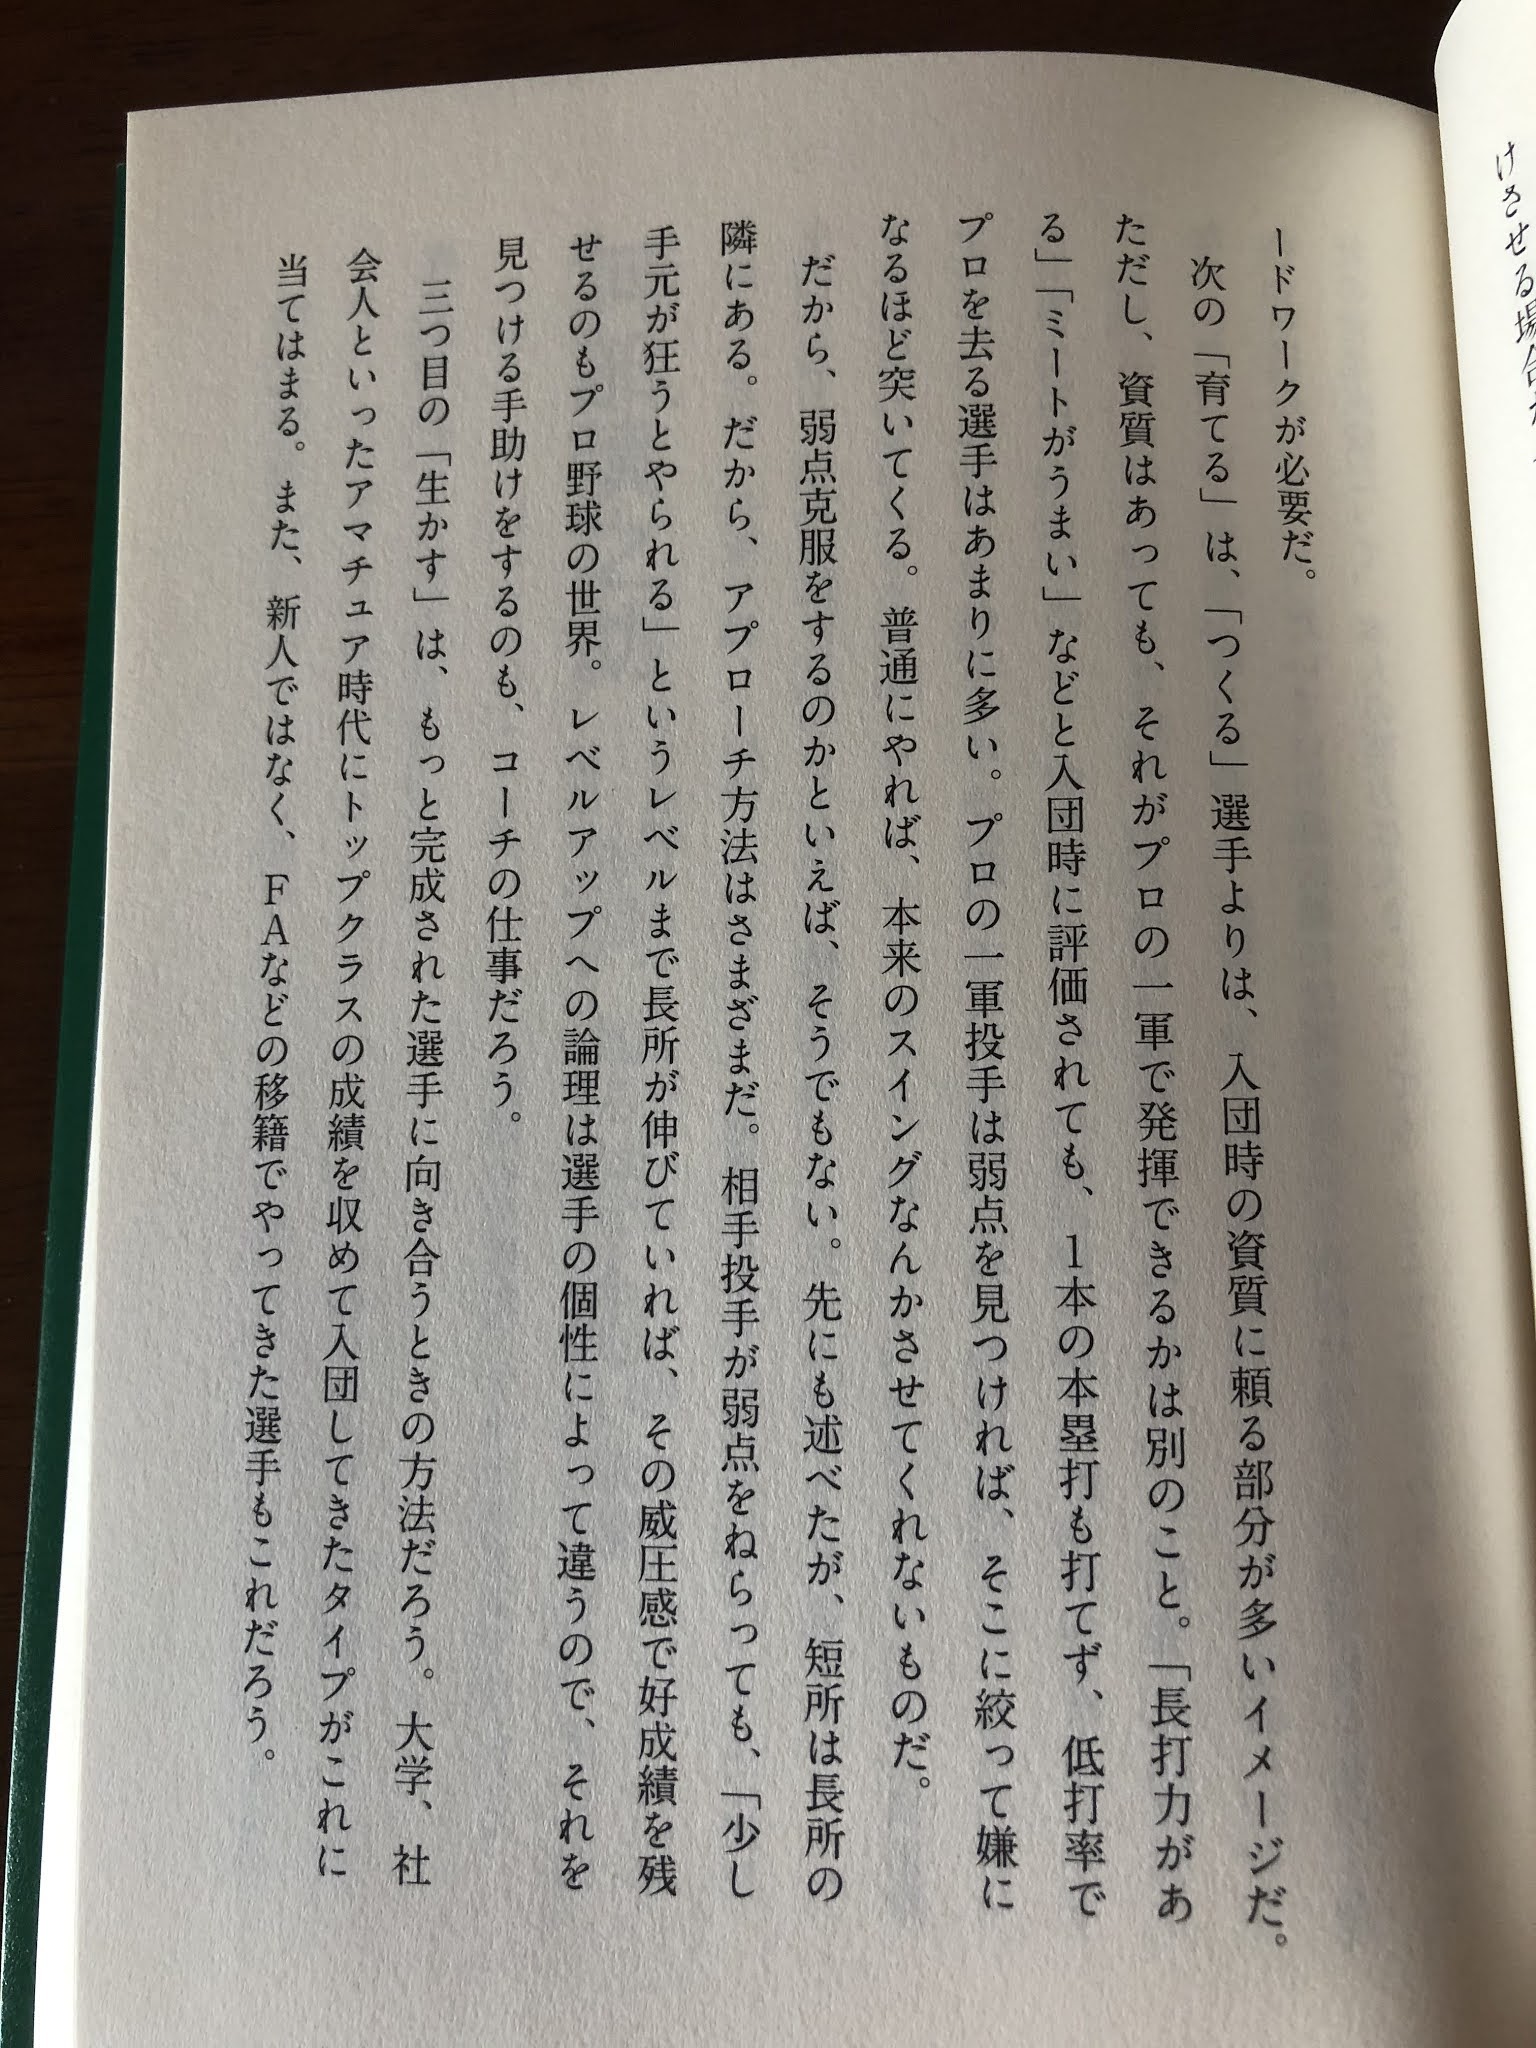 けさせる場合
ードワークが必要だ。
次の「育てる」は、「つくる」選手よりは、入団時の資質に頼る部分が多いイメージだ。
ただし、資質はあっても、それがプロの一軍で発揮できるかは別のこと。「長打力があ
る」「ミートがうまい」などと入団時に評価されても、1本の本塁打も打てず、低打率で
プロを去る選手はあまりに多い。プロの一軍投手は弱点を見つければ、そこに絞って嫌に
なるほど突いてくる。普通にやれば、本来のスイングなんかさせてくれないものだ。
だから、弱点克服をするのかといえば、そうでもない。先にも述べたが、短所は長所の
隣にある。だから、アプローチ方法はさまざまだ。相手投手が弱点をねらっても、「少し
手元が狂うとやられる」というレベルまで長所が伸びていれば、その威圧感で好成績を残
せるのもプロ野球の世界。レベルアップへの論理は選手の個性によって違うので、それを
見つける手助けをするのも、コーチの仕事だろう。
三つ目の「生かす」は、もっと完成された選手に向き合うときの方法だろう。大学、社
会人といったアマチュア時代にトップクラスの成績を収めて入団してきたタイプがこれに
当てはまる。また、新人ではなく、FAなどの移籍でやってきた選手もこれだろう。